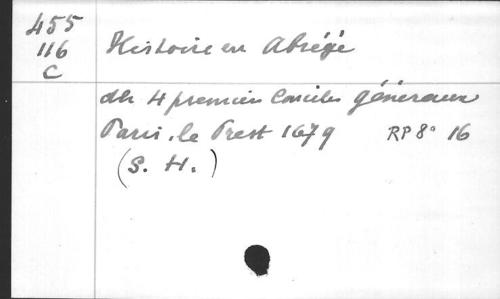 455
116
C
Histoire en Abrégé
des 4 premiers Conciles généraux
Paris, le Prest 1679 RP 8° 16
(S. H.)